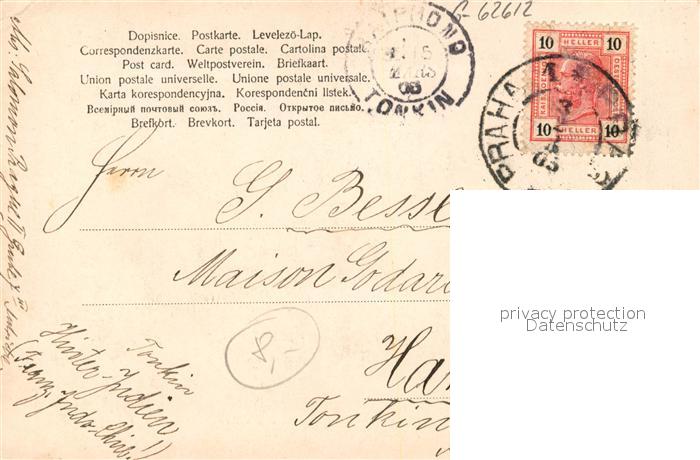 G-62612
Dopisnice. Postkarte. Levelező-Lap.
Correspondenzkarte. Carte postale. Cartolina postale.
Post card. Weltpostverein. Briefkaart.
Union postale universelle. Unione postale universale.
Karta korespondencyjna. Korespondenční lístek.
Всемірный почтовый союзъ. Россія. Открытое письмо.
Brefkort. Brevkort. Tarjeta postal.
TONKIN
10 HELLER 10
10 HELLER 10
PRAHA 1
Herrn
G. Bessl
Maison Godar
Ha
Tonkin
8,-
Tonkin
Hinter-Indien
privacy protection
Datenschutz